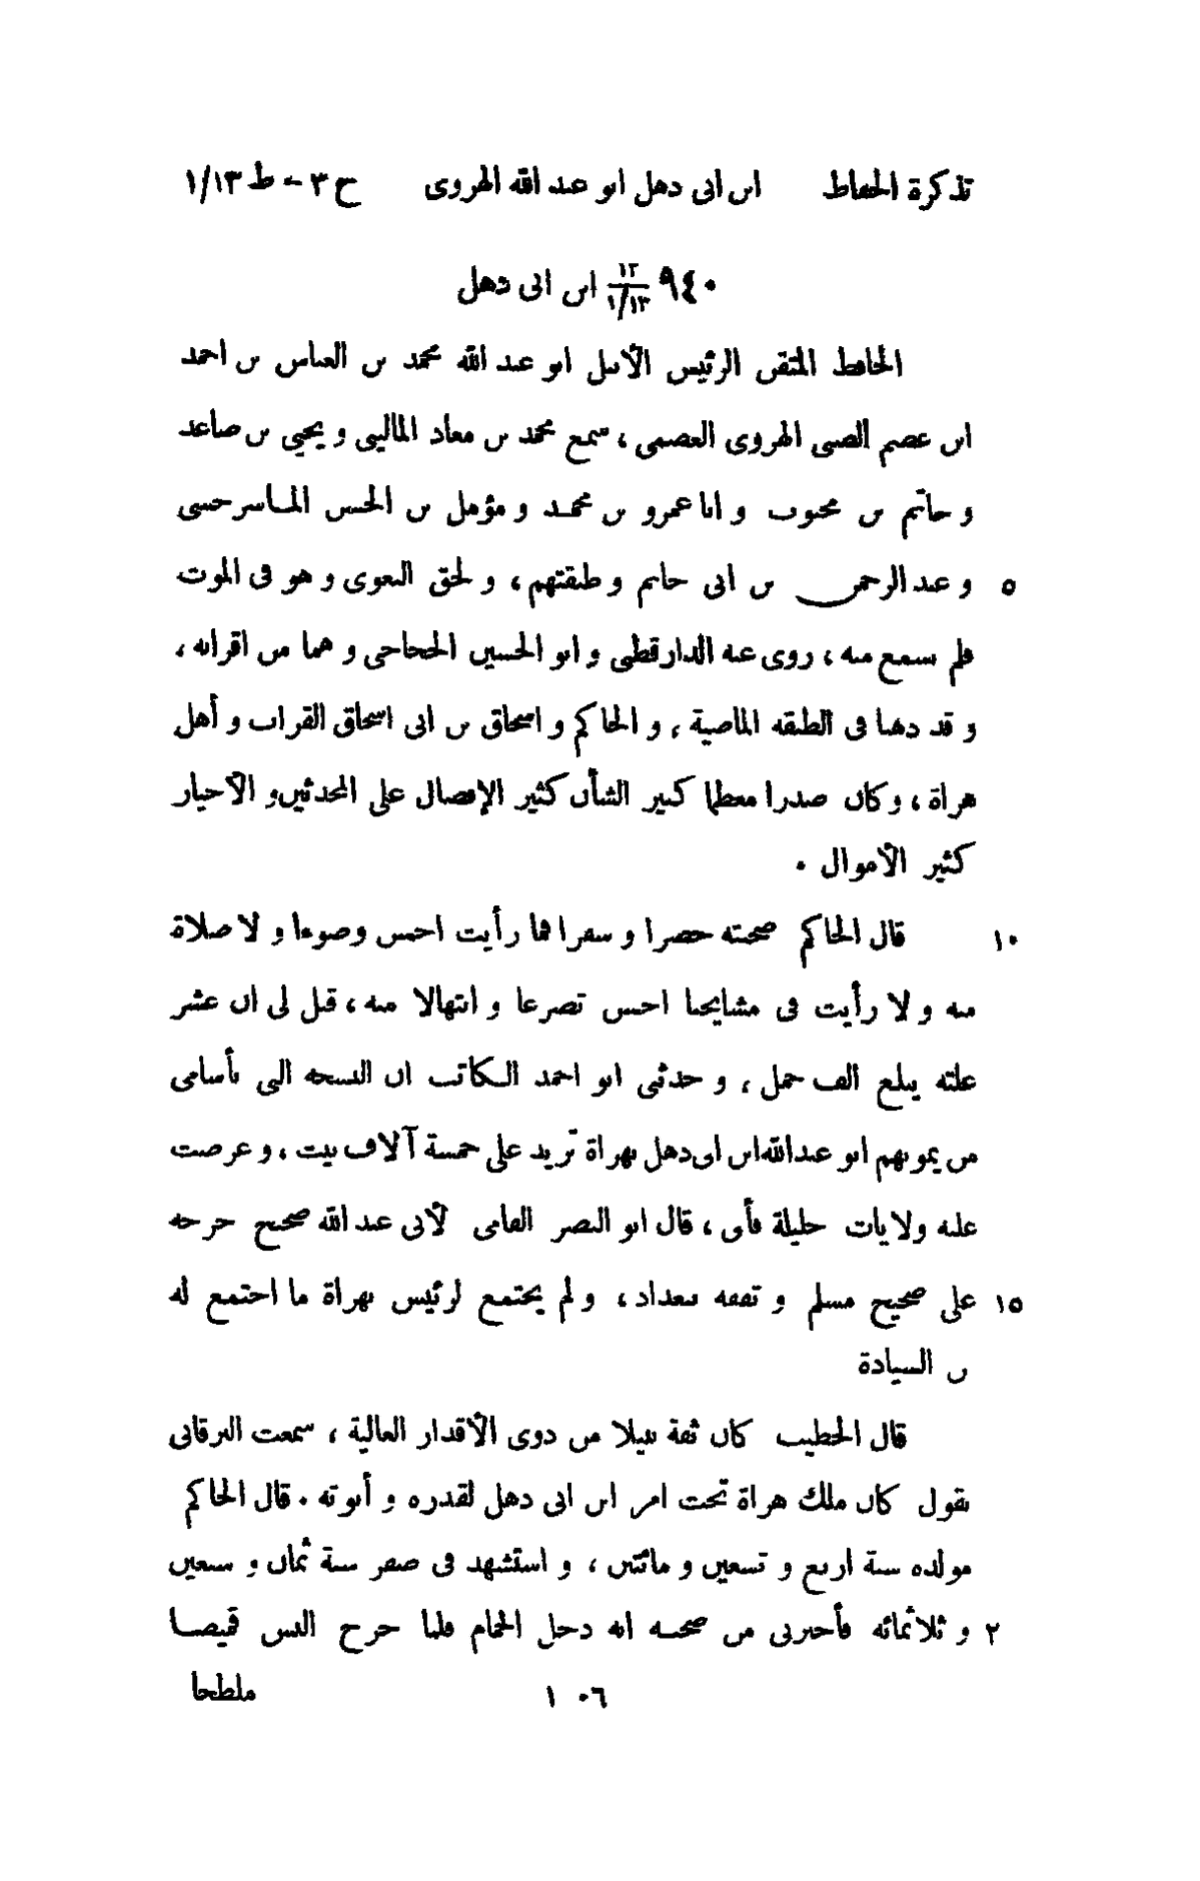 تذكرة الحفاظ ابن ابى ذهل ابو عبد الله الهروى ج ٣ - ط ١/١٣
٩٤٠ ١٢/١/١٣ ابن ابى ذهل
الحافظ المتقن الرئيس الأنبل ابو عبد الله محمد بن العباس بن احمد
ابن عصم الضبى الهروى العصمى ، سمع محمد بن معاذ المالينى و يحيى بن صاعد
و حاتم بن محبوب و ابا عمرو بن محمد و مؤمل بن الحسن الماسرجسى
٥ و عبد الرحمن بن ابى حاتم و طبقتهم ، و لحق البغوى و هو فى الموت
فلم يسمع منه ، روى عنه الدارقطنى و ابو الحسين الحجاجى و هما من اقرانه ،
و قد ذهبا فى الطبقة الماضية ، و الحاكم و اسحاق بن ابى اسحاق القراب و أهل
هراة ، و كان صدرا معظما كبير الشأن كثير الإفضال على المحدثين و الأخيار
كثير الأموال .
١٠ قال الحاكم صحبته حضرا و سفرا فما رأيت احسن وضوءا و لا صلاة
منه و لا رأيت فى مشايخنا احسن تضرعا و ابتهالا منه ، قيل لى ان عشر
غلته يبلغ الف حمل ، و حدثنى ابو احمد الكاتب ان النسخة التى بأسامى
من يمونهم ابو عبد الله ابن ابى ذهل بهراة تزيد على خمسة آلاف بيت ، و عرضت
عليه ولايات جليلة فأبى ، قال ابو النضر الفامى لأبى عبد الله صحيح خرجه
١٥ على صحيح مسلم و تفقه ببغداد ، و لم يجتمع لرئيس بهراة ما اجتمع له
من السيادة
قال الخطيب كان ثقة نبيلا من ذوى الأقدار العالية ، سمعت البرقانى
يقول كان ملك هراة تحت امر ابن ابى ذهل لقدره و أبوته . قال الحاكم
مولده سنة اربع و تسعين و مائتين ، و استشهد فى صفر سنة ثمان و سبعين
٢ و ثلاثمائه فأخبرنى من صحبه انه دخل الحمام فلما خرج البس قميصا
١٠٠٦ ملطخا